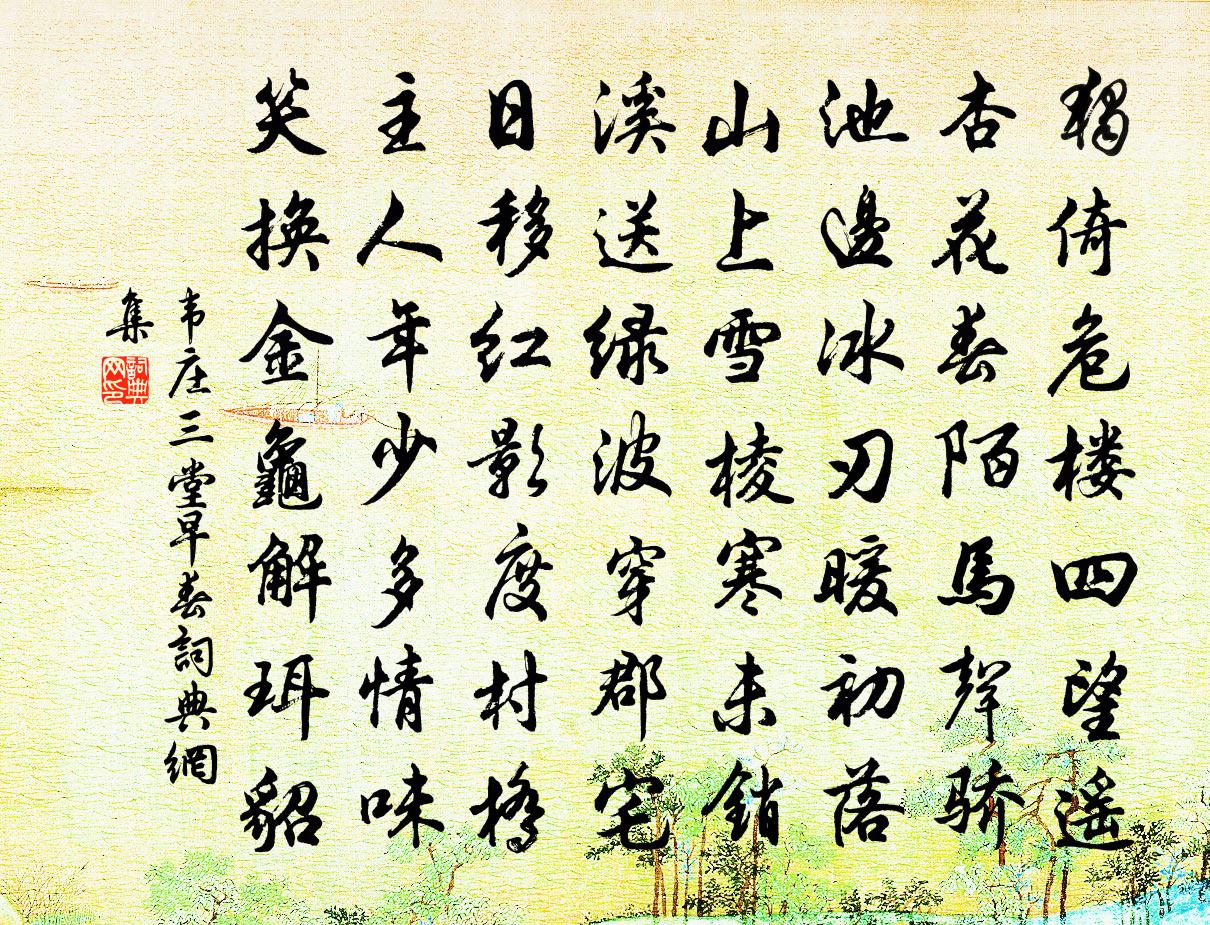 獨倚危楼四望遥
杏花春陌馬聲骄
池邊冰刃暖初落
山上雪棱寒未銷
溪送绿波穿郡宅
日移红影度村橋
主人年少多情味
笑换金龜解珥貂
韦庄三堂早春詞典網
集
詞典网印